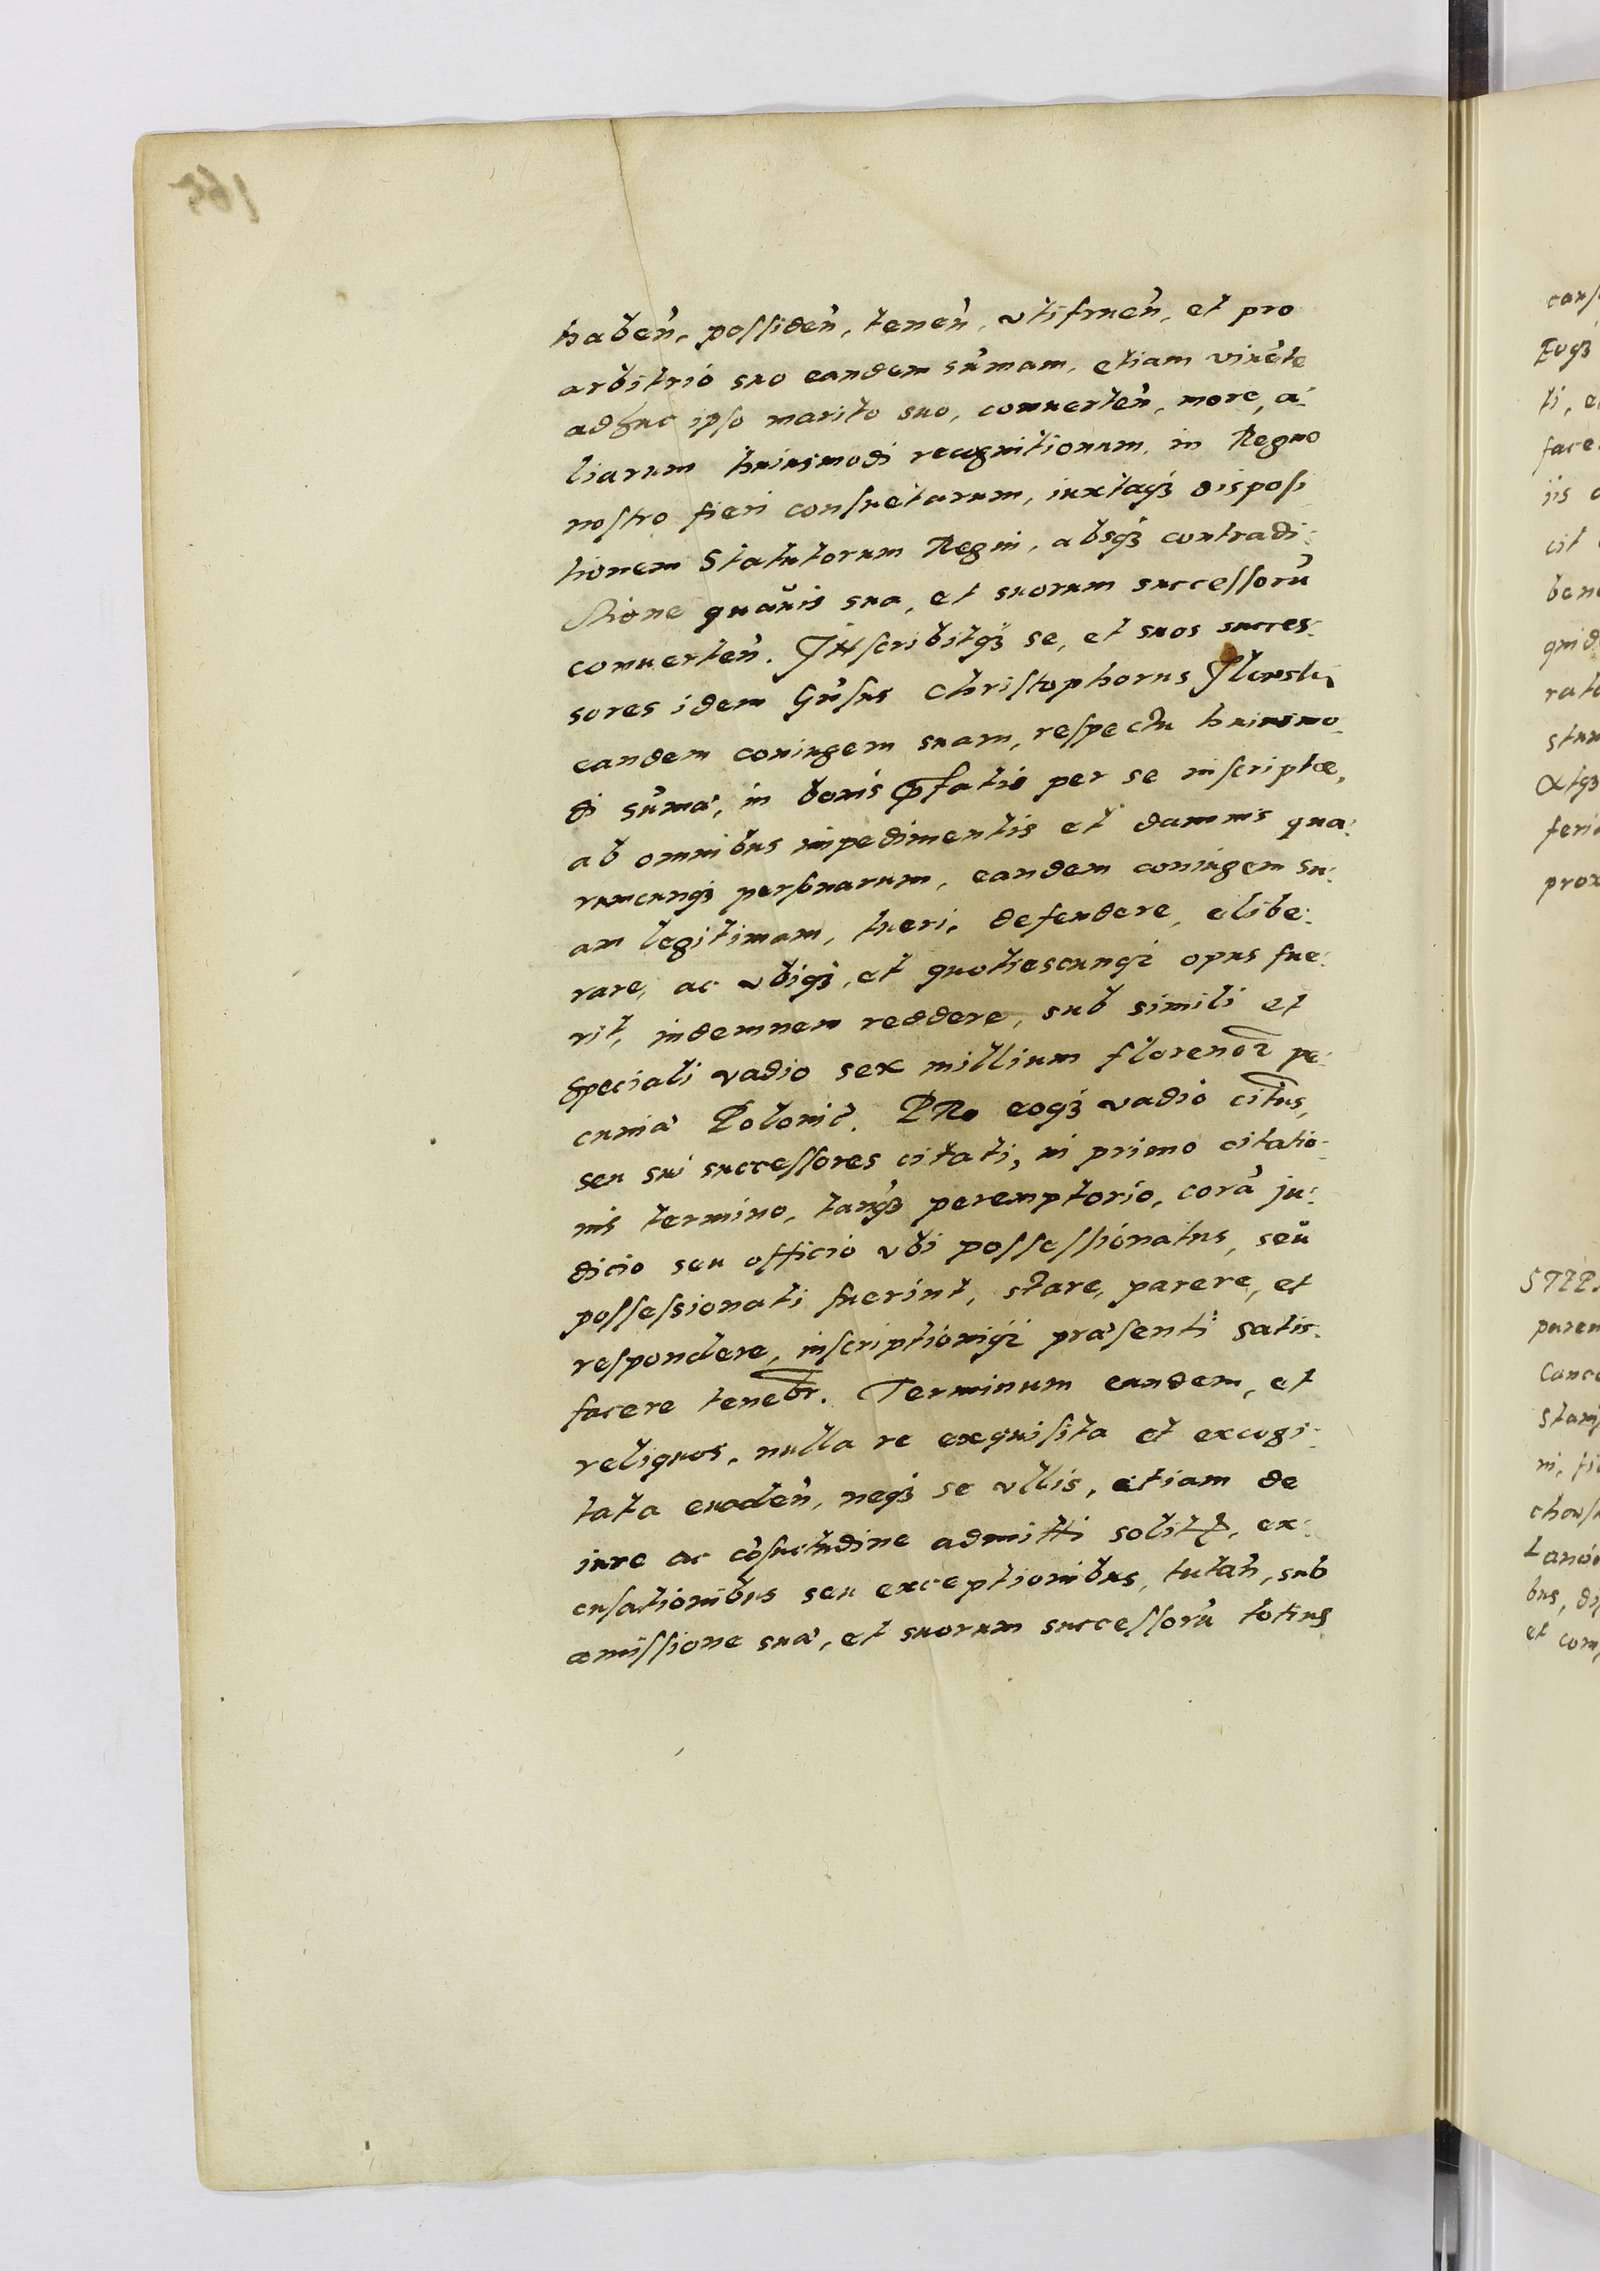 haben̄, possiden̄, tenen̄, vtifruen̄, et pro
arbitrio suo eandem sūmam, etiam viuēte
adhuc ipso marito suo, conuerten̄, more, a:
liarum huiusmodi recognitionum, in Regno
nostro fieri consuetarum, iuxtaq3 disposi
tionem Statutorum Regni, absq3 contradi:
ctione quāuis sua, et suorum successorū
conuerten̄. INscribitq3 se, et suos succes:
sores idem Gn̄sus Christophorus
eandem coniugem suam, respectu huiusmo
di sūmæ, in bonis p̄fatis per se inscriptæ,
ab omnibus impedimentis et damnis qua:
rumcunq3 personarum, eandem coniugem su:
am legitimam, tueri, defendere, elibe:
rare, ac vbiq3, et quotiescunq3 opus fue:
rit, indemnem reddere, sub simili et
speciali vadio sex millium florenoꝝ pe:
cuniæ Polonic̄. PRo eoq3 vadio cit̄us,
seu sui successores citati, in primo citatio:
nis termino, tanq3 peremptorio, corā ju:
dicio seu officio vbi possessionatus, seu
possessionati fuerint, stare, parere, et
respondere, inscriptioniq3 præsenti satis:
facere teneb̄r. Terminum eundem, et
reliquos, nulla re exquisita et excogi:
tata euaden̄, neq3 se vllis, etiam de
iure ac cōsuetudine admitti solitꝭ, ex:
cusationibus seu exceptionibus, tutan̄, sub
amissione suæ, et suorum successorū totius